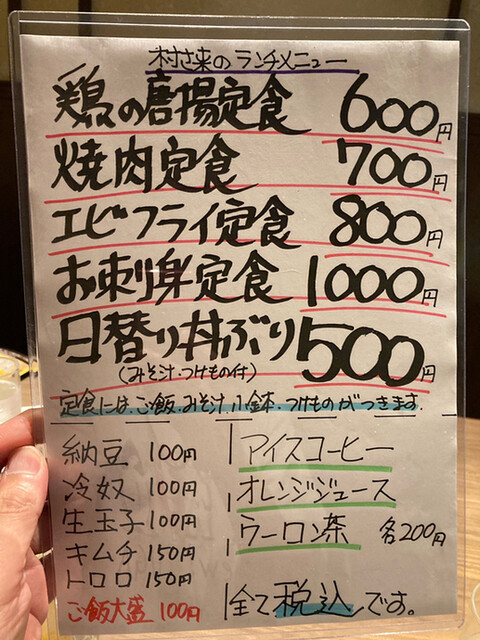 村さ来のランチメニュー
鶏の唐揚定食 600円
焼肉定食 700円
エビフライ定食 800円
お刺身定食 1000円
日替り丼ぶり 500円
(みそ汁・つけもの付)
定食にはご飯.みそ汁.小鉢.つけものがつきます.
納豆 100円
冷奴 100円
生玉子 100円
キムチ 150円
トロロ 150円
ご飯大盛 100円
アイスコーヒー
オレンジジュース
ウーロン茶 各200円
全て税込です。